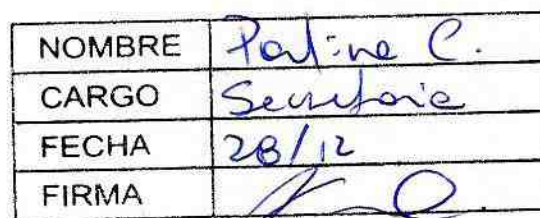 NOMBRE Paulina C.
CARGO Secretaria
FECHA 28/12
FIRMA